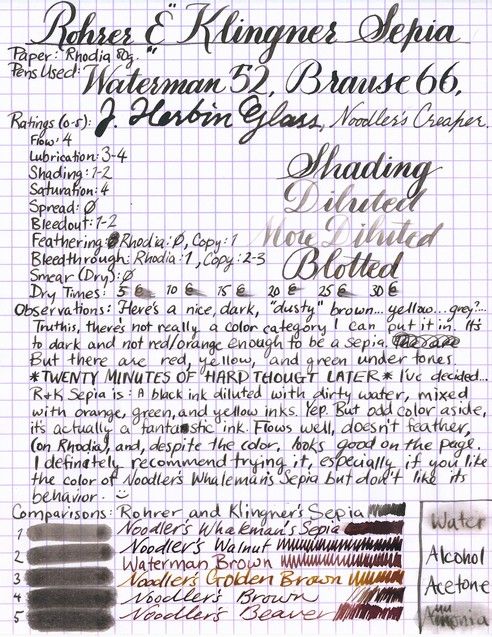 Rohrer & Klingner Sepia
Paper: Rhodia 80g.
Pens Used: Waterman 52, Brause 66,
J. Herbin Glass, Noodler's Creaper.
Ratings (0-5):
Flow: 4
Lubrication: 3-4
Shading: 1-2
Saturation: 4
Spread: Ø
Bleedout: 1-2
Feathering: Rhodia: Ø, Copy: 1
Bleedthrough: Rhodia: 1, Copy: 2-3
Smear (Dry): Ø
Shading
Diluted
More Diluted
Blotted
Dry Times: 5 € 10 € 15 € 20 € 25 € 30 €
Observations: Here's a nice, dark, "dusty" brown... yellow... grey?...
Truth is, there's not really a color category I can put it in. It's
to dark and not red/orange enough to be a sepia.
But there are red, yellow, and green under tones.
*TWENTY MINUTES OF HARD THOUGT LATER* I've decided...
R+K Sepia is: A black ink diluted with dirty water, mixed
with orange, green, and yellow inks. Yep. But odd color aside,
it's actually a fantastic ink. Flows well, doesn't feather,
(on Rhodia), and, despite the color, looks good on the page.
I definitely recommend trying it, especially if you like
the color of Noodler's Whaleman's Sepia but don't like its
behavior. :)
Comparisons: Rohrer and Klingner's Sepia
1 Noodler's Whaleman's Sepia
2 Noodler's Walnut
Waterman Brown
3 Noodler's Golden Brown
4 Noodler's Brown
5 Noodler's Beaver
Water
Alcohol
Acetone
Ammonia